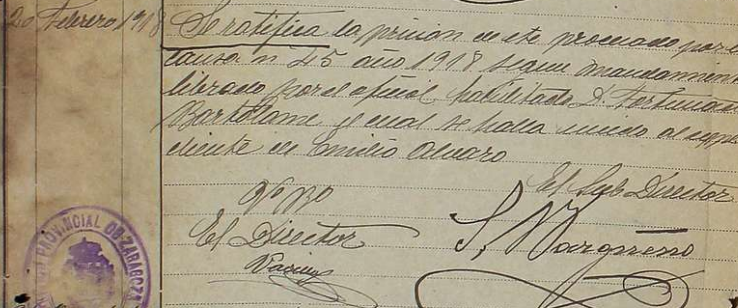 20 Febrero 1918
Se ratifica la prision de este procesado por la
causa n 45 año 1918 segun mandamiento
librado por el oficial habilitado D. Fortunato
Bartolome el cual se halla unido al expe
diente de Emilio Alvaro
Vº Bº
El Sub Director
El Director
S,
PROVINCIAL DE ZARAGOZA